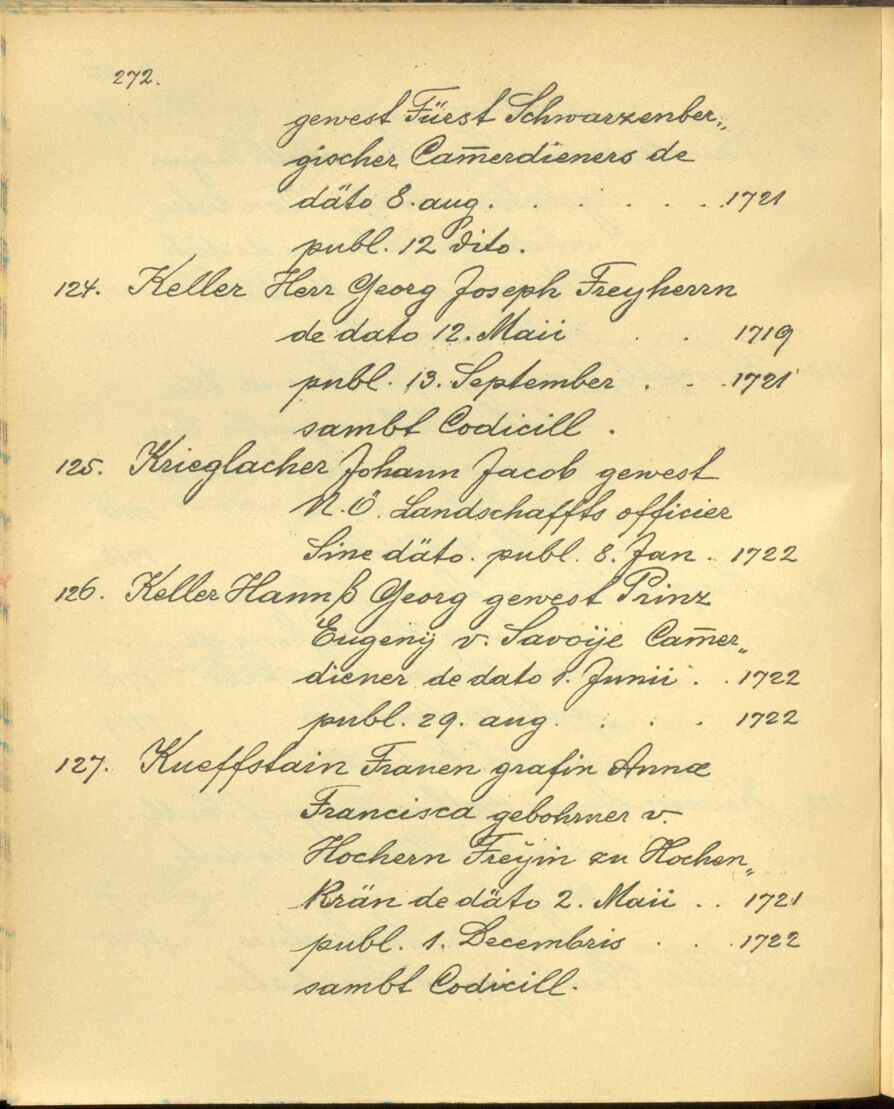 272.
gewest Fürst Schwarzenber„
gischer Cam̄erdieners de
däto 8. aug. . . . . . 1721
publ. 12 dito.
124. Keller Herr Georg Joseph Freyherrn
de dato 12. Maii . . 1719
publ. 13. September . . 1721
sambt Codicill .
125. Krieglacher Johann Jacob gewest
N.Ö. Landschaffts officier
Sine däto. publ. 8. Jan . 1722
126. Keller Hannß Georg gewest Prinz
Eugenÿ v. Savoÿe Cam̄er„
diener de dato 1. Junii . . 1722
publ. 29. aug. . . . 1722
127. Kueffstain Frauen grafin Annæ
Francisca gebohrner v.
Hochern Freÿin zu Hochen„
Krän de däto 2. Maii . . 1721
publ. 1. Decembris . . . 1722
sambt Codicill.